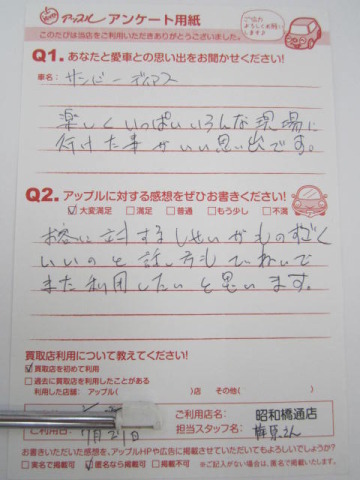 アップル アンケート用紙
このたびは当店をご利用いただきありがとうございました。
ご協力よろしくお願いします♪
Q1. あなたと愛車との思い出をお聞かせください!
車名: サンバーディアス
楽しくいっぱいいろんな現場に
行けた事がいい思い出です。
Q2. アップルに対する感想をぜひお書きください!
☑大変満足 □満足 □普通 □もう少し □不満
お客に対するしせいがものすごく
いいのと話し方もていねいで
また利用したいと思います。
買取店利用について教えてください!
☑買取店を初めて利用
□過去に買取店を利用したことがある
利用した店舗: アップル( )店 その他( )
ご利用日: 7月21日
ご利用店名: 昭和橋通店
担当スタッフ名: さん
お書きいただいた感想を、アップルHPや広告に掲載させていただいてもよろしいでしょうか?
□実名で掲載可 ☑匿名なら掲載可 □掲載不可 ※ご記入がない場合は、匿名で掲載いたします。